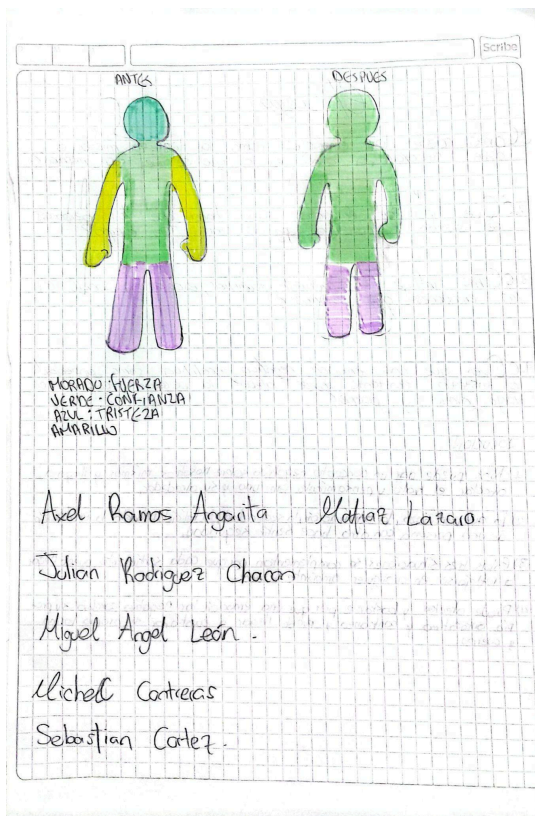 Scribe
ANTES DESPUES
MORADO: FUERZA
VERDE: CONFIANZA
AZUL: TRISTEZA
AMARILLO
Axel Ramos Angarita Matiaz Lazaro.
Julian Rodriguez Chacon
Miguel Angel León.
Michell Contreras
Sebastian Cortez.